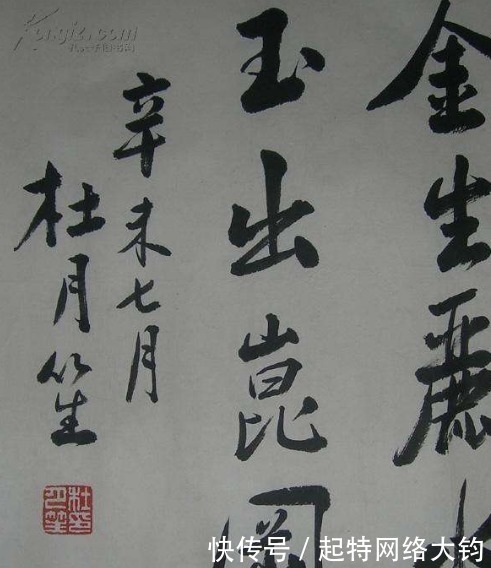 金生麗水
玉出崑岡
辛未七月
杜月笙
Kongfz.com
快传号／起特网络大钧